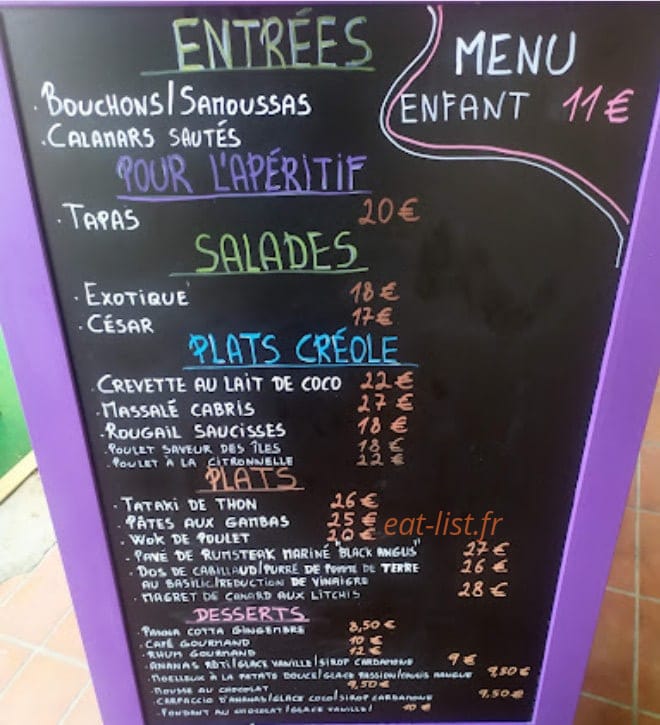 ENTRÉES
MENU
ENFANT 11 €
· BOUCHONS/SAMOUSSAS
· CALAMARS SAUTÉS
POUR L'APÉRITIF
· TAPAS 20 €
SALADES
· EXOTIQUE 18 €
· CÉSAR 17 €
PLATS CRÉOLE
· CREVETTE AU LAIT DE COCO 22 €
· MASSALÉ CABRIS 27 €
· ROUGAIL SAUCISSES 18 €
· POULET SAVEUR DES ÎLES 18 €
· POULET À LA CITRONNELLE 22 €
PLATS
· TATAKI DE THON 26 €
· PÂTES AUX GAMBAS 25 €
eat-list.fr
· WOK DE POULET 20 €
· PAVÉ DE RUMSTEAK MARINÉ "BLACK ANGUS" 27 €
· DOS DE CABILLAUD/PURRÉ DE POMME DE TERRE 26 €
AU BASILIC/REDUCTION DE VINAIGRE
· MAGRET DE CANARD AUX LITCHIS 28 €
DESSERTS
· PANNA COTTA GINGEMBRE 8,50 €
· CAFÉ GOURMAND 10 €
· RHUM GOURMAND 12 €
· ANANAS RÔTI/GLACE VANILLE/SIROP CARDAMOME 9 €
· MOELLEUX À LA PATATE DOUCE/GLACE PASSION/COULIS MANGUE 9,50 €
· MOUSSE AU CHOCOLAT 9,50 €
· CARPACCIO D'ANANAS/GLACE COCO/SIROP CARDAMOME 9,50 €
· FONDANT AU CHOCOLAT/GLACE VANILLE/ 10 €